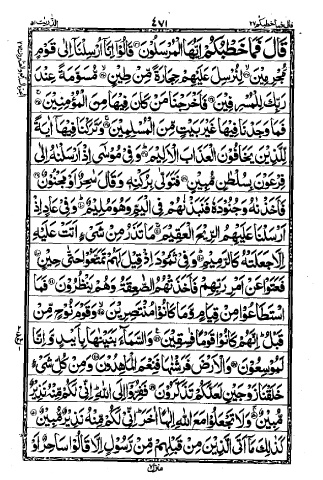 قال فما خطبكم ٢٧ ٤٧١ الذّٰریٰت ٥١
قَالَ فَمَا خَطْبُكُمْ اَيُّهَا الْمُرْسَلُوْنَ قَالُوْٓا اِنَّآ اُرْسِلْنَآ اِلٰى قَوْمٍ
مُّجْرِمِيْنَ لِنُرْسِلَ عَلَيْهِمْ حِجَارَةً مِّنْ طِيْنٍ مُّسَوَّمَةً عِنْدَ
رَبِّكَ لِلْمُسْرِفِيْنَ فَاَخْرَجْنَا مَنْ كَانَ فِيْهَا مِنَ الْمُؤْمِنِيْنَ
فَمَا وَجَدْنَا فِيْهَا غَيْرَ بَيْتٍ مِّنَ الْمُسْلِمِيْنَ وَتَرَكْنَا فِيْهَآ اٰيَةً
لِّلَّذِيْنَ يَخَافُوْنَ الْعَذَابَ الْاَلِيْمَ وَفِيْ مُوْسٰٓى اِذْ اَرْسَلْنٰهُ اِلٰى
فِرْعَوْنَ بِسُلْطٰنٍ مُّبِيْنٍ فَتَوَلّٰى بِرُكْنِهٖ وَقَالَ سٰحِرٌ اَوْ مَجْنُوْنٌ
فَاَخَذْنٰهُ وَجُنُوْدَهٗ فَنَبَذْنٰهُمْ فِي الْيَمِّ وَهُوَ مُلِيْمٌ وَفِيْ عَادٍ اِذْ
اَرْسَلْنَا عَلَيْهِمُ الرِّيْحَ الْعَقِيْمَ مَا تَذَرُ مِنْ شَيْءٍ اَتَتْ عَلَيْهِ
اِلَّا جَعَلَتْهُ كَالرَّمِيْمِ وَفِيْ ثَمُوْدَ اِذْ قِيْلَ لَهُمْ تَمَتَّعُوْا حَتّٰى حِيْنٍ
فَعَتَوْا عَنْ اَمْرِ رَبِّهِمْ فَاَخَذَتْهُمُ الصّٰعِقَةُ وَهُمْ يَنْظُرُوْنَ فَمَا
اسْتَطَاعُوْا مِنْ قِيَامٍ وَّمَا كَانُوْا مُنْتَصِرِيْنَ وَقَوْمَ نُوْحٍ مِّنْ
قَبْلُ اِنَّهُمْ كَانُوْا قَوْمًا فٰسِقِيْنَ وَالسَّمَآءَ بَنَيْنٰهَا بِاَيْدٍ وَّاِنَّا
لَمُوْسِعُوْنَ وَالْاَرْضَ فَرَشْنٰهَا فَنِعْمَ الْمٰهِدُوْنَ وَمِنْ كُلِّ شَيْءٍ
خَلَقْنَا زَوْجَيْنِ لَعَلَّكُمْ تَذَكَّرُوْنَ فَفِرُّوْٓا اِلَى اللّٰهِ اِنِّيْ لَكُمْ مِّنْهُ نَذِيْرٌ
مُّبِيْنٌ وَلَا تَجْعَلُوْا مَعَ اللّٰهِ اِلٰهًا اٰخَرَ اِنِّيْ لَكُمْ مِّنْهُ نَذِيْرٌ مُّبِيْنٌ
كَذٰلِكَ مَآ اَتَى الَّذِيْنَ مِنْ قَبْلِهِمْ مِّنْ رَّسُوْلٍ اِلَّا قَالُوْا سَاحِرٌ اَوْ